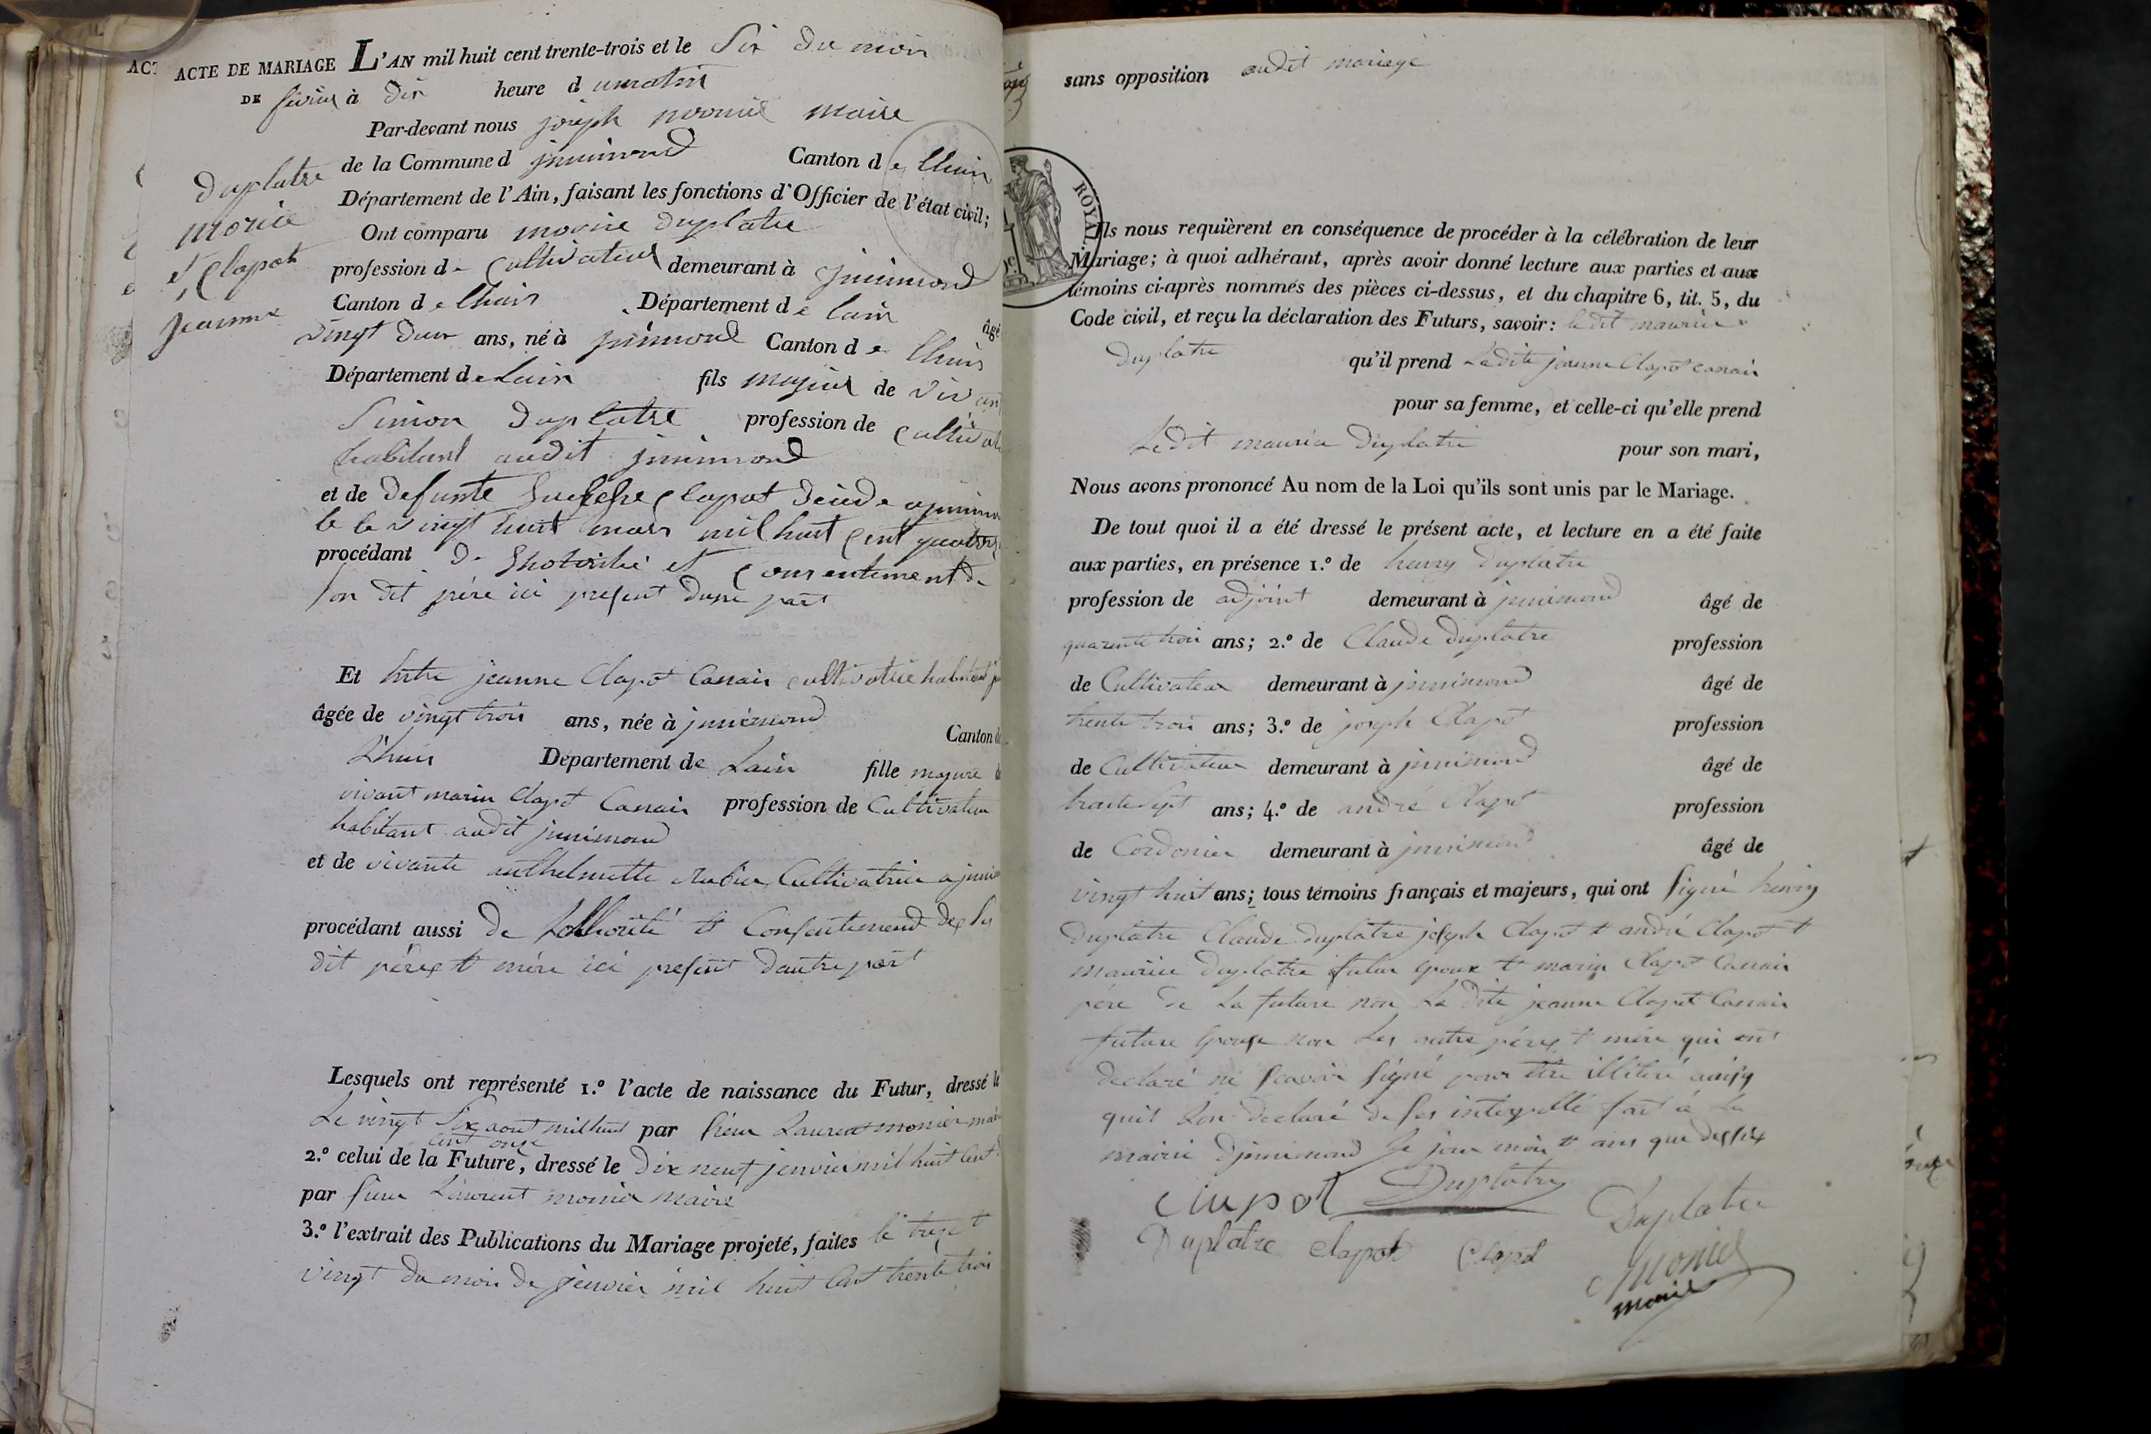 ACTE DE MARIAGE L'AN mil huit cent trente-trois et le Six du mois
DE fevrier à dix heure d umatin
Par-devant nous joseph monnié maire
de la Commune d jnnimond Canton d e Lhuis
Département de l'Ain, faisant les fonctions d'Officier de l'état civil;
Duplatre
morice
et Clapot
jeanne
Ont comparu morice duplatre
profession d e Cultivateur demeurant à jnnimond
Canton d e Lhuis Département d e Lain âgé
vingt deux ans, né à jnnimond Canton d e Lhuis
Département d e Lain fils majeur de vivant
Simon Duplatre profession de Cultivat
habitant audit jnnimond
et de defunte Clapot décéde a jnnimon
le vingt huit mars mil huit Cent quatorze
procédant de et Consentement de
son dit père ici present dune part
Et jeanne Clapot Canair cultivatrice habitant
âgée de vingt trois ans, née à jnnimond Canton de
Lhuis Département de Lain fille majeure de
vivant marin Clapot Canair profession de Cultivateur
habitant audit jnnimond
et de vivante anthelmette Cultivatrice a jnnim
procédant aussi de Lottorité et Consentement de ses
dit père et mère ici present dautre part
Lesquels ont représenté 1.º l'acte de naissance du Futur, dressé le
Le vingt Six aout mil huit par sieur Laurent monier maire
cent onze
2.º celui de la Future, dressé le Dix neuf janvier mil huit Cent
par sieur Laurent monier maire
3.º l'extrait des Publications du Mariage projeté, faites le treze et
vingt du mois de janvier mil huit Cent trente trois
sans opposition audit mariage
ROYAL
Ils nous requièrent en conséquence de procéder à la célébration de leur
Mariage; à quoi adhérant, après avoir donné lecture aux parties et aux
témoins ci-après nommés des pièces ci-dessus, et du chapitre 6, tit. 5, du
Code civil, et reçu la déclaration des Futurs, savoir: le dit maurice
Duplatre qu'il prend Ladite jeanne Clapot Canair
pour sa femme, et celle-ci qu'elle prend
Ledit maurice Duplatre pour son mari,
Nous avons prononcé Au nom de la Loi qu'ils sont unis par le Mariage.
De tout quoi il a été dressé le présent acte, et lecture en a été faite
aux parties, en présence 1.º de henry Duplatre
profession de adjoint demeurant à jnnimond âgé de
quarente trois ans; 2.º de Claude Duplatre profession
de Cultivateur demeurant à jnnimond âgé de
trente trois ans; 3.º de joseph Clapot profession
de Cultivateur demeurant à jnnimond âgé de
trente sept ans; 4.º de andré Clapot profession
de Cordonier demeurant à jnnimond âgé de
vingt huit ans; tous témoins français et majeurs, qui ont signé henry
Duplatre Claude Duplatre joseph Clapot et andré Clapot et
maurice Duplatre futur Epoux et marin Clapot Canair
père de La future non La dite jeanne Clapot Canair
future Epouse non Les autre père et mère qui ont
declaré ne scavoir signé pour être illiteré ainsy
quil Lon declaré de fait à La
mairie djnnimond Le jour mois et ans que dessus
Clapot Duplatre Duplatre
Duplatre Clapot Clapot
monier
maire